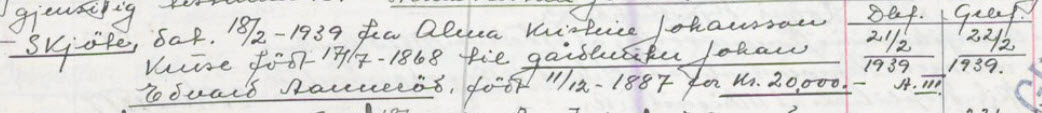 gjensidig
Skjöte, dat. 18/2 - 1939 fra Alma Kristine Johansson
Kruse född 17/7 - 1868 til gårdbruker Johan
Edvard Aanneröd, född 11/12 - 1887 for Kr. 20,000.-
Dbf. Grbf.
21/2 22/2
1939 1939.
A. III.